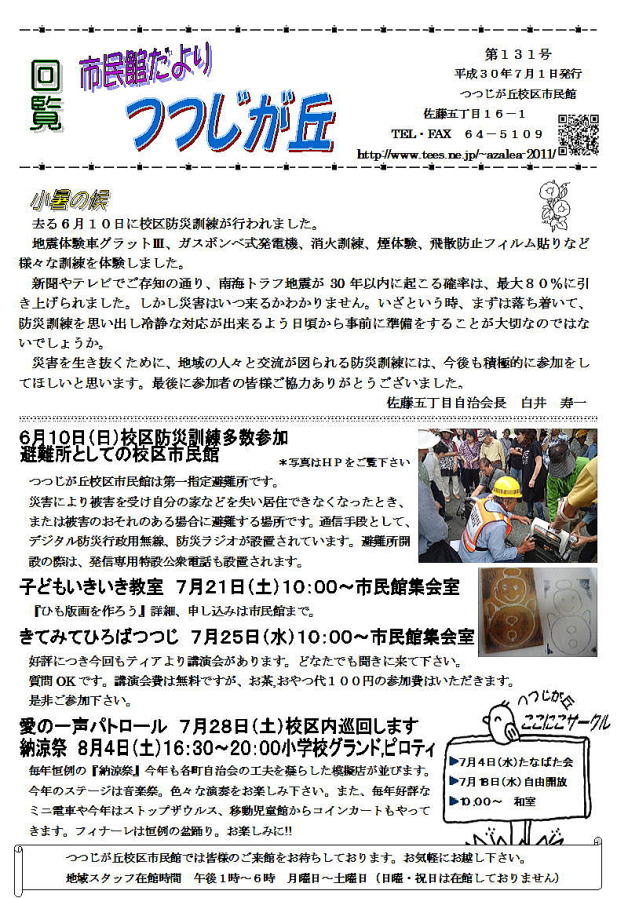 回覧
市民館だより
つつじが丘
第１３１号
平成３０年７月１日発行
つつじが丘校区市民館
佐藤五丁目１６－１
TEL・FAX　６４－５１０９
http://www.tees.ne.jp/~azalea-2011/
小暑の候
去る６月１０日に校区防災訓練が行われました。
地震体験車グラットⅢ、ガスボンベ式発電機、消火訓練、煙体験、飛散防止フィルム貼りなど
様々な訓練を体験しました。
新聞やテレビでご存知の通り、南海トラフ地震が 30 年以内に起こる確率は、最大８０％に引
き上げられました。しかし災害はいつ来るかわかりません。いざという時、まずは落ち着いて、
防災訓練を思い出し冷静な対応が出来るよう日頃から事前に準備をすることが大切なのではな
いでしょうか。
災害を生き抜くために、地域の人々と交流が図られる防災訓練には、今後も積極的に参加をし
てほしいと思います。最後に参加者の皆様ご協力ありがとうございました。
佐藤五丁目自治会長　白井　寿一
6月10日(日)校区防災訓練多数参加
避難所としての校区市民館
＊写真はＨＰをご覧下さい
つつじが丘校区市民館は第一指定避難所です。
災害により被害を受け自分の家などを失い居住できなくなったとき、
または被害のおそれのある場合に避難する場所です。通信手段として、
デジタル防災行政用無線、防災ラジオが設置されています。避難所開
設の際は、発信専用特設公衆電話も設置されます。
子どもいきいき教室　7月21日(土)10:00～市民館集会室
『ひも版画を作ろう』詳細、申し込みは市民館まで。
きてみてひろばつつじ　7月25日(水)10:00～市民館集会室
好評につき今回もティアより講演会があります。どなたでも聞きに来て下さい。
質問 OK です。講演会費は無料ですが、お茶,おやつ代１００円の参加費はいただきます。
是非ご参加下さい。
愛の一声パトロール　7月28日(土)校区内巡回します
納涼祭　8月4日(土)16:30～20:00小学校グランド,ピロティ
毎年恒例の『納涼祭』今年も各町自治会の工夫を凝らした模擬店が並びます。
今年のステージは音楽祭。色々な演奏をお楽しみ下さい。また、毎年好評な
ミニ電車や今年はストップザウルス、移動児童館からコインカートもやって
きます。フィナーレは恒例の盆踊り。お楽しみに!!
つつじが丘
ここにこサークル
7月4日(水)たなばた会
7月18日(水)自由開放
10:00～　和室
つつじが丘校区市民館では皆様のご来館をお待ちしております。お気軽にお越し下さい。
地域スタッフ在館時間　午後１時～６時　月曜日～土曜日（日曜・祝日は在館しておりません）